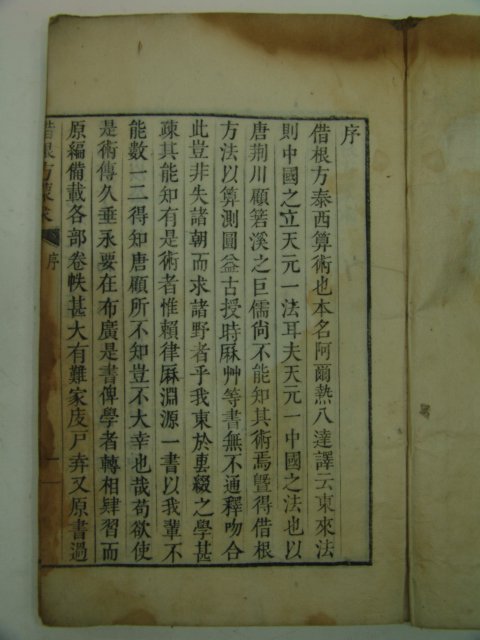 序
借根方泰西算術也本名阿爾熱八達譯云東來法
則中國之立天元一法耳夫天元一中國之法也以
唐荆川顧箬溪之巨儒尙不能知其術焉曁得借根
方法以算測圓益古授時厤艸等書無不通釋吻合
此豈非失諸朝而求諸野者乎我東於裏綴之學甚
疎其能知有是術者惟賴律厤淵源一書以我軰不
能數一二得知唐顧所不知豈不大幸也哉苟欲使
是術傳久垂永要在布廣是書俾學者轉相肄習而
原編備載各部卷帙甚大有難家庋戸弆又原書過
借根方蒙求
序
一